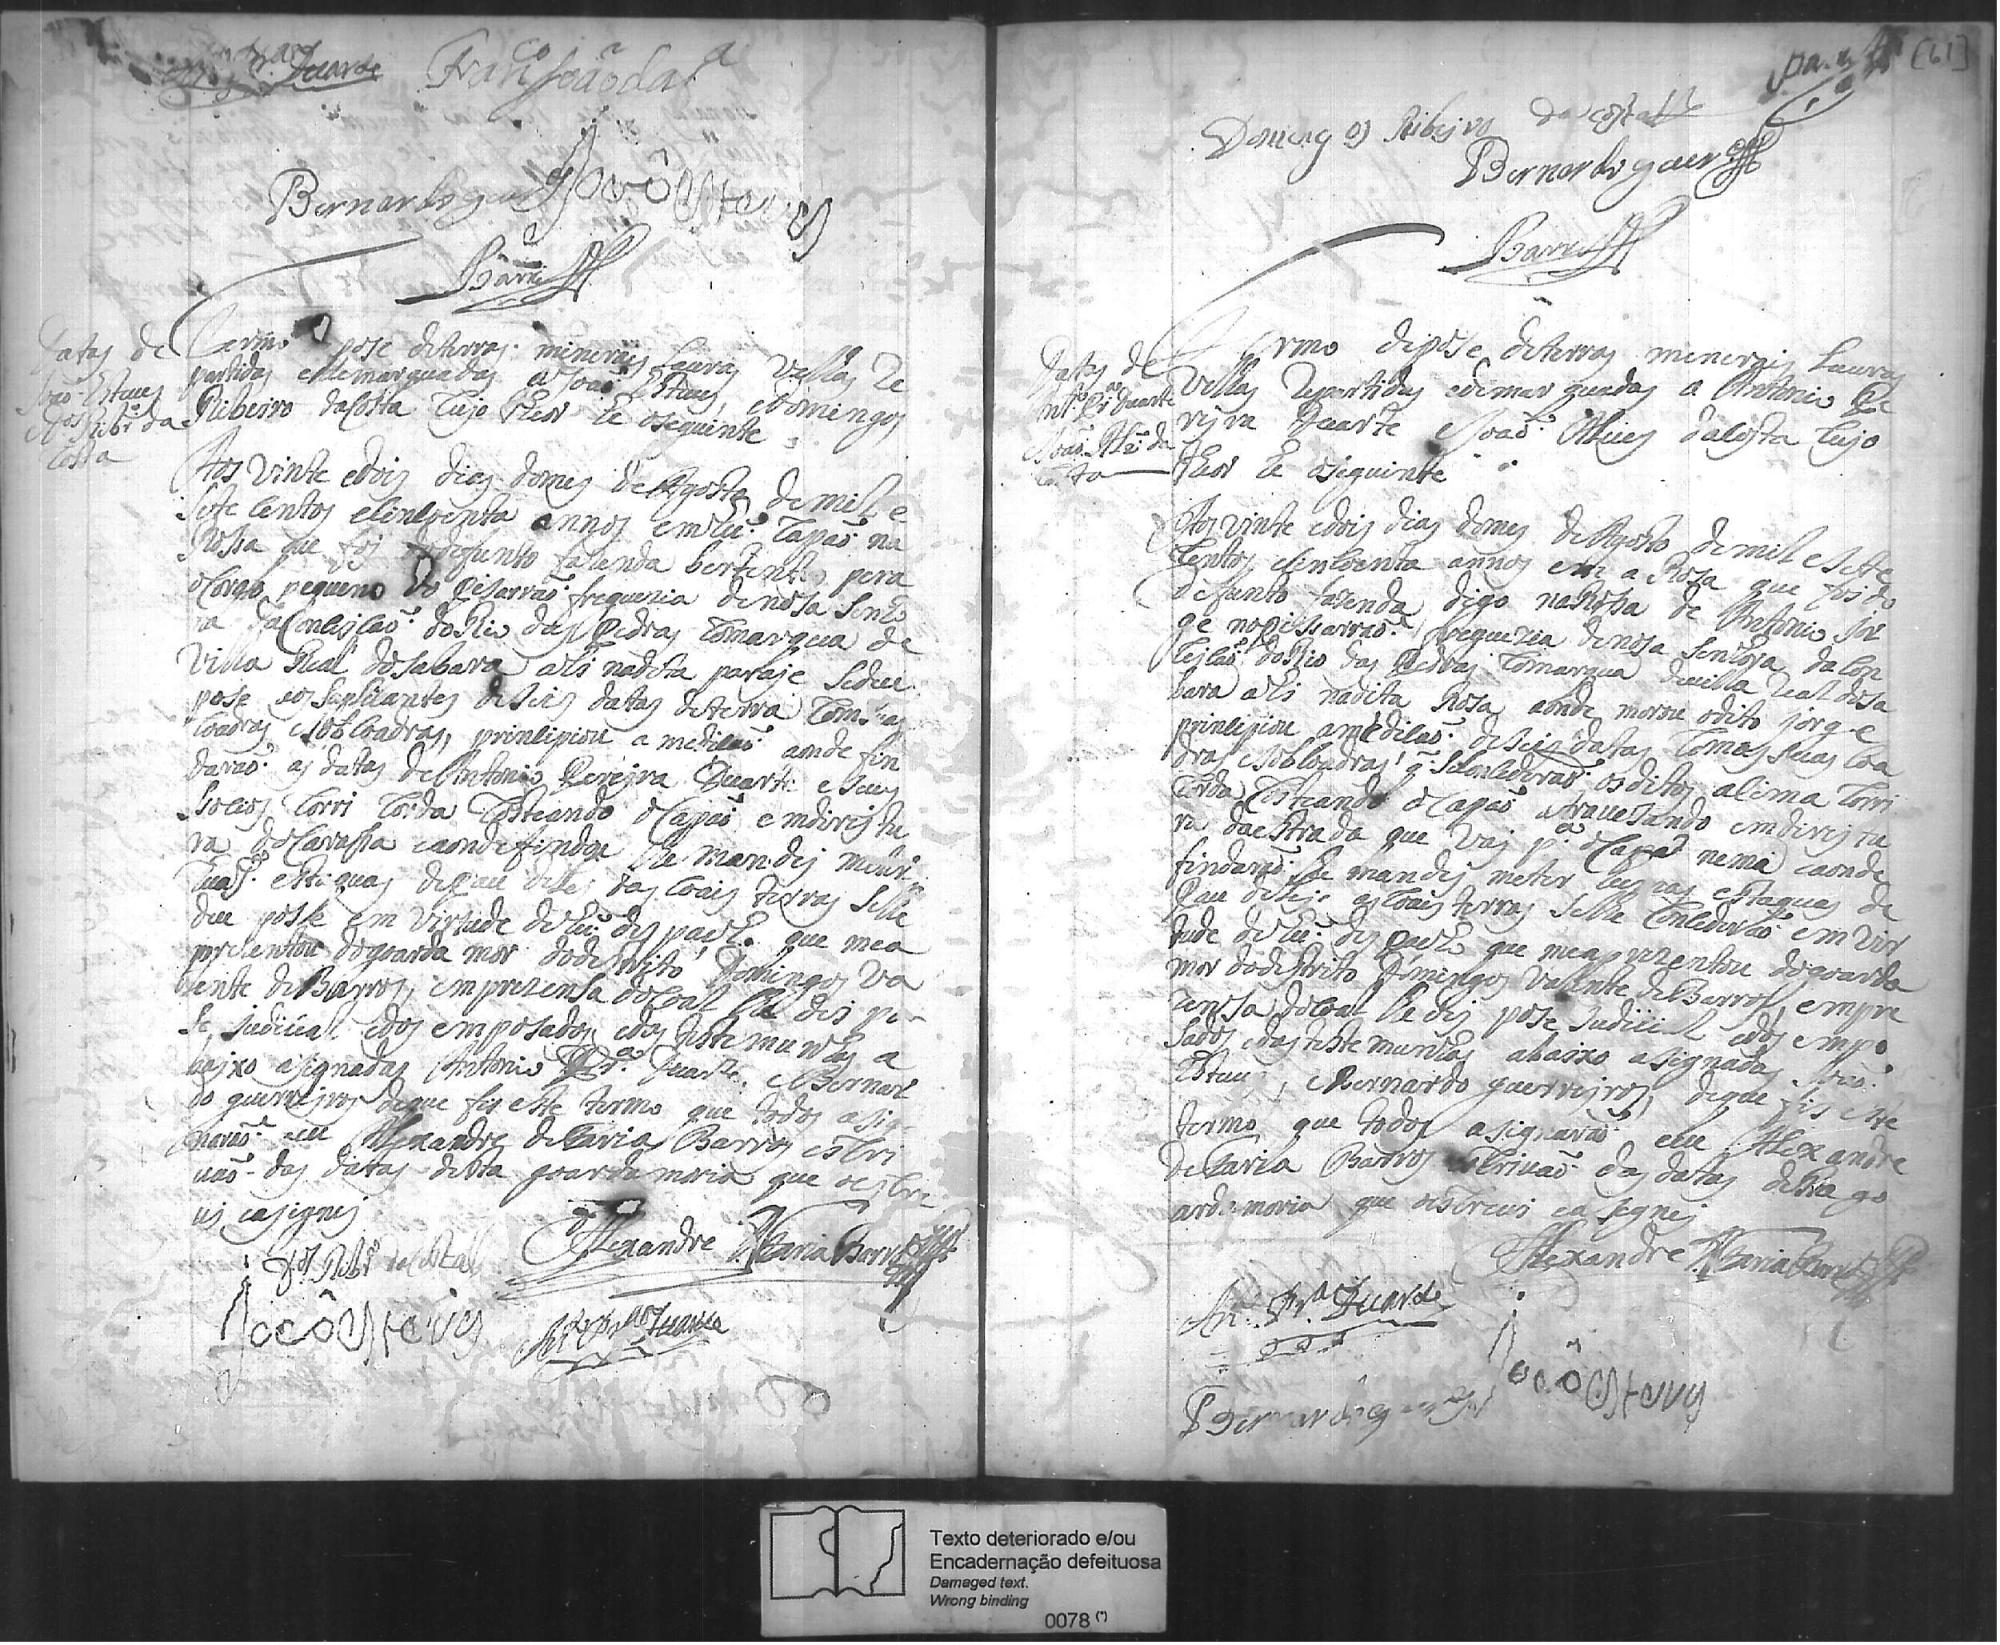 An.to Pr.ª Duarte Fran.co João da S.ª
Bernardo guer.os João Esteves
Barros
Datas de
João Esteues
D.os Ribr.º da
Costa
Termo pose de terras minerais lauras vellas Re
partidas e demarquadas a João Esteues, e Domingos
Ribeiro da Costa cujo theor he o seguinte
Aos vinte e dois dias do mes de Agosto de mil e
sete centos e sincoenta annos em hũ Capaõ na
Rossa que foi do defunto fazenda bertente pera
o Corgo pequeno do Pisarraõ freguezia de nosa Senho
ra da Conseisaõ do Rio das Pedras Comarqua de
Villa Real do Sabara ahi na dita paraje se deu
pose aos suplicantes de seis datas de terra com suas
coadras, e sobcoadras, prinsipiou a medisaõ aonde fin
daraõ as datas de Antonio Pereyra Duarte e seus
socios Corri Corda Costeando o Capaõ em direytu
ra do Carassa e aonde findou lhe mandej meter
suas estaquas de pau de lej das coais terras se lhe
deu posse em virtude de hũ despacho que me a
prezentou do goarda mor do destrito Domingos Va
lente de Barros, em prezensa do coal lhe dis po
se judicial e dos emposados e das testemunhas a
baixo asignadas Antonio Pr.ª Duarte, e Bernar
do guerreyros de que fis este termo que todos asig
naraõ e eu Alexandre de Faria Barros escri
uaõ das datas desta goardamoria que o escre
ui e asignej
Alexandre de Faria Barros
D.os Ribr.º da Costa
João Esteves An.to Pr.ª Duarte
[61]
Domingos Ribeiro da Costa
Bernardo guer.os
Barros
Datas de
Ant.º Pr.ª Duarte
João Alz da
Costa
Termo de pose de terras minerais lauras
vellas Repartidas e demarquadas a Antonio Pe
reyra Duarte e João Alues da Costa cujo
theor he o siguinte
Aos vinte e dois dias do mes de Agosto de mil e sete
centos e sincoenta annos em a Rosa que foi do
defunto fazenda digo na Rossa de Antonio Jor
ge no Pissarraõ freguezia de nosa Senhora da Con
seisaõ do Rio das Pedras Comarqua de villa Real do Sa
bara ahi na dita Rosa aonde morou o dito jorge
prinsipiou a medisaõ de seis datas com as suas coa
dras e sobcoadras q̃ se concederaõ os ditos asima Corri
Corda Costeando o Capaõ atrauesando em direytu
ra da estrada que vaj p.ª o Capaõ nema e aonde
findaraõ lhe mandej meter suas estaquas de
pau de lej. as coais terras se lhe Consederaõ em vir
tude de hũ despacho que me aprezentou do goarda
mor do destrito Domingos Valente de Barros, em pre
zensa do coal lhe dej pose judicial e dos empo
sados e das testemunhas abaixo asignadas João
Esteues, e Bernardo guerreyros, de que fis este
termo que todos asignaraõ e eu Alexandre
de Faria Barros escriuaõ das datas desta go
ardamoria que o escreui e asignej
Alexandre de Faria Barros
An.to Pr.ª Duarte
João Esteves
Bernardo guer.os
Texto deteriorado e/ou
Encadernação defeituosa
Damaged text.
Wrong binding
0078 (*)